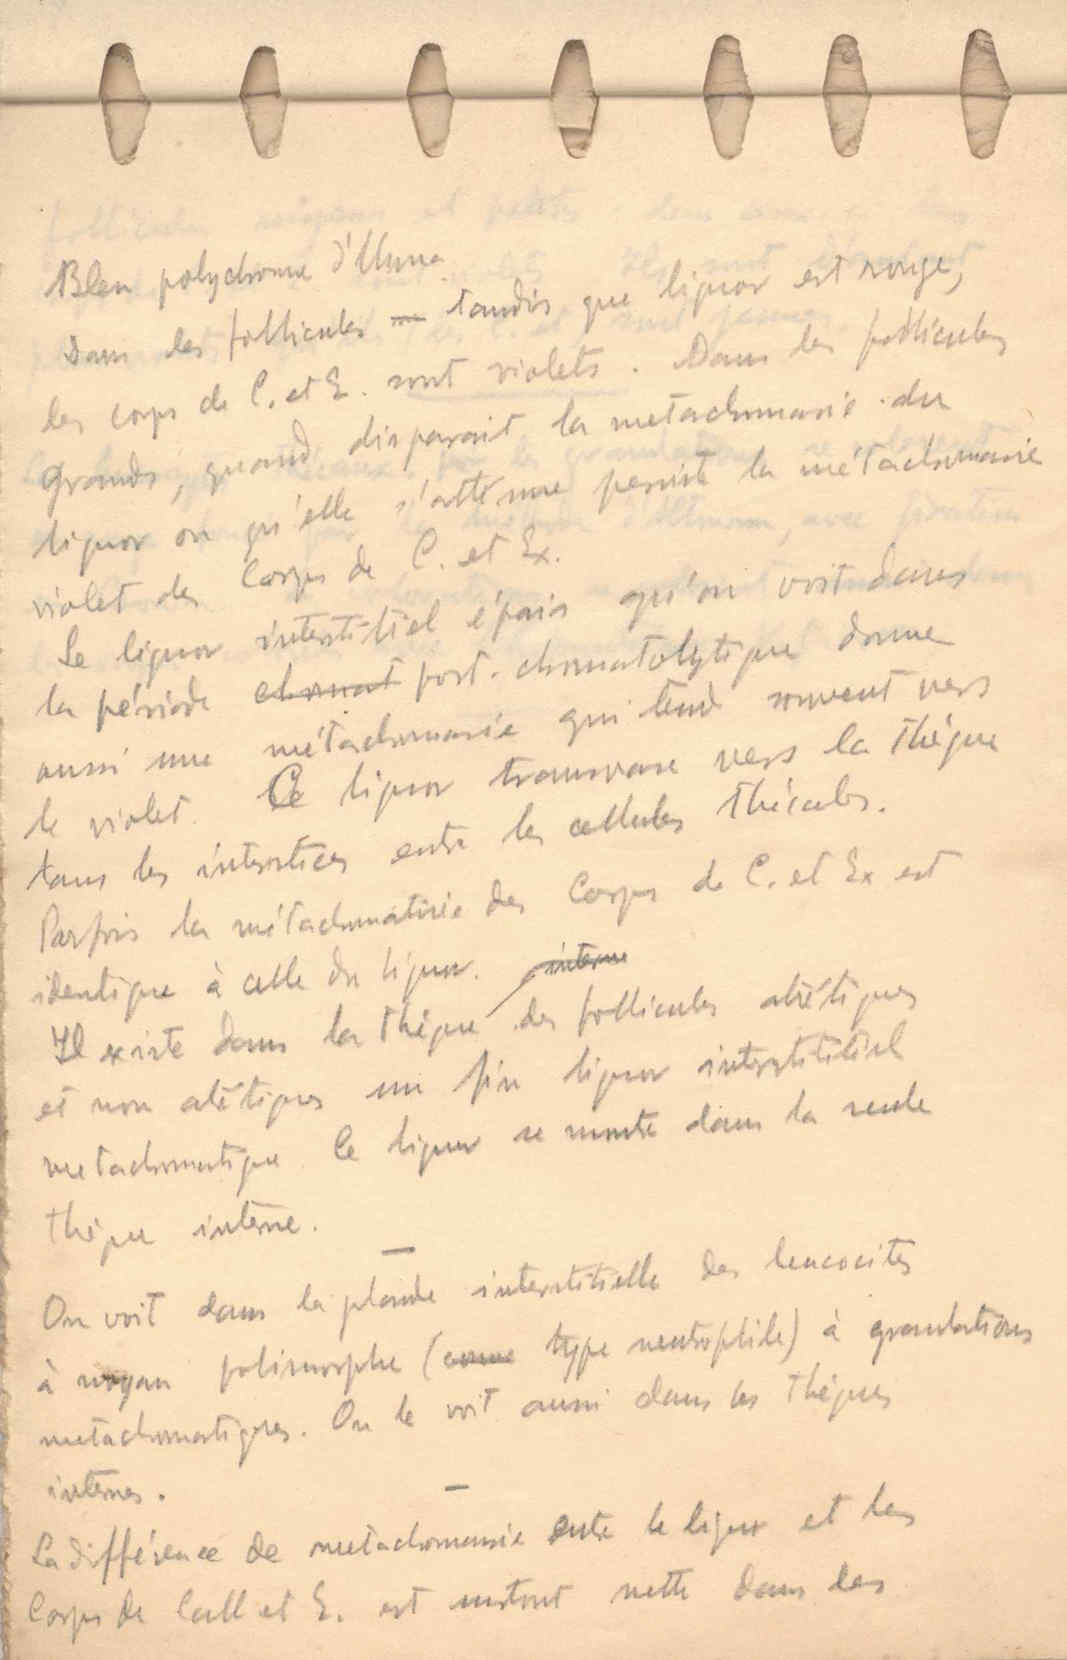 Bleu polychrome d'Unna
Dans les follicules tandis que liquor est rouge,
les corps de C. et E. sont violets. Dans les follicules
grands, quand disparait la metachromasie du
liquor ou qu'elle s'atténue persiste la métachromasie
violet des Corps de C. et Ex.
Le liquor interstitiel épais qu'on voit dans
la période chromat post-chromatolytique donne
aussi une métachromasie qui tend souvent vers
le violet. Ce liquor transvase vers la thèque
dans les interstices entre les cellules thécales.
Parfois la métachromasie des Corps de C. et Ex est
identique à celle du liquor. interne
Il existe dans la thèque des follicules atrétiques
et non atrétiques un fin liquor interstitiel
metachromatique. Ce liquor se montre dans la seule
thèque interne.
—
On voit dans la glande interstitielle des leucocites
à noyau polimorphe (comme type neutrophile) à granulations
metachromatiques. On le voit aussi dans les thèques
internes.
—
La différence de metachromasie entre le liquor et les
Corps de Call et E. est surtout nette dans les